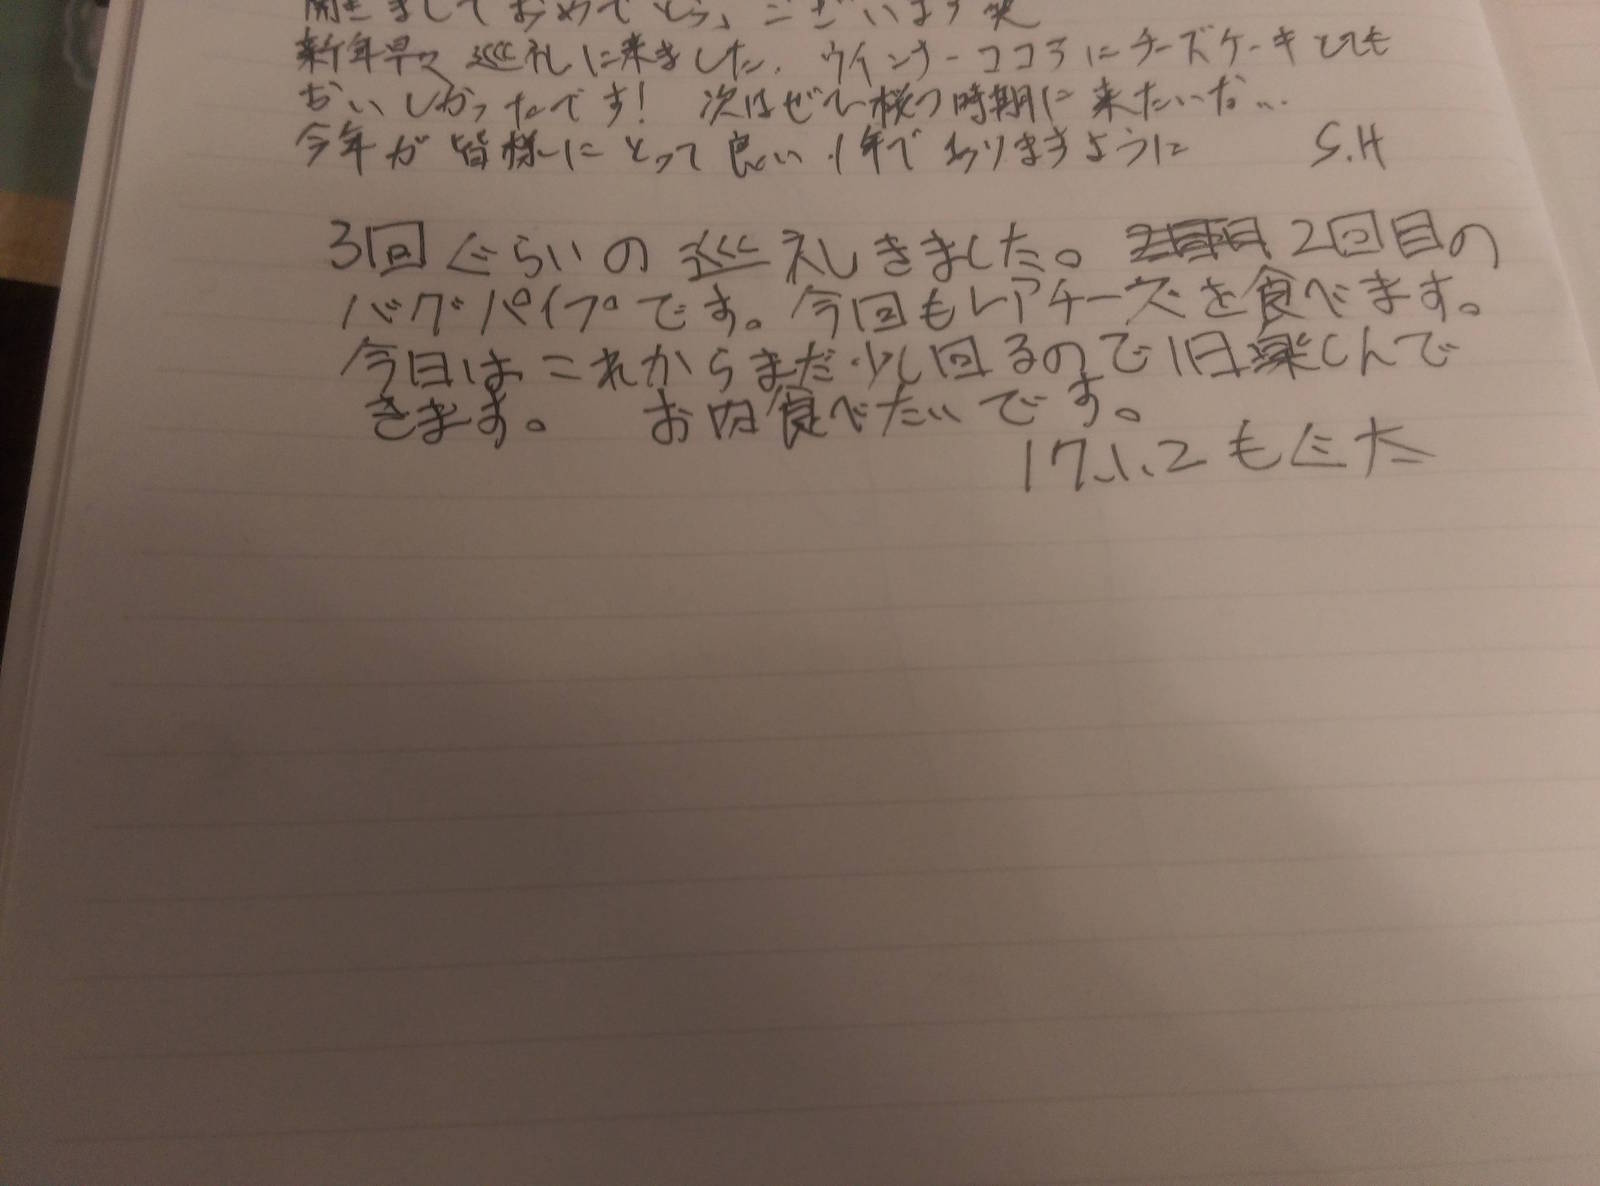 開きましておめでとうございます笑
新年早々 巡礼に来ました。ウインナーココアにチーズケーキとても
おいしかったです! 次はぜひ桜の時期に来たいな…
今年が皆様にとって良い1年でありますように S.H
3回ぐらいの巡礼きました。2回目の
バグパイプです。今回もレアチーズを食べます。
今日はこれからまだ少し回るので1日楽しんで
きます。 お肉食べたいです。
17.1.2 もぐた